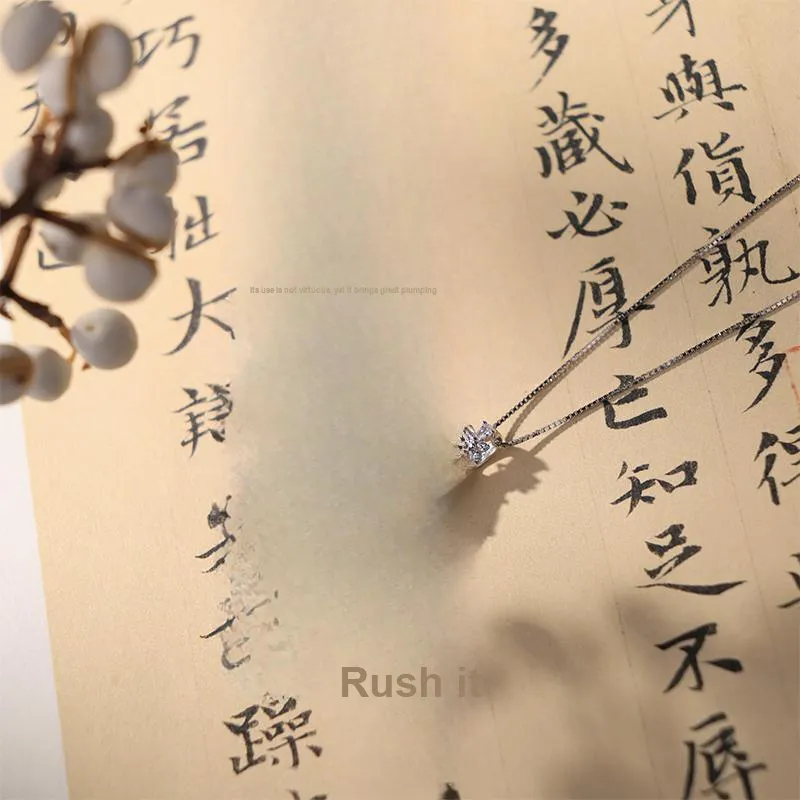 與貨孰多得
多藏必厚亡知足不辱
巧若拙大
躁
Its use is not virtuous, yet it brings great plumping
Rush it